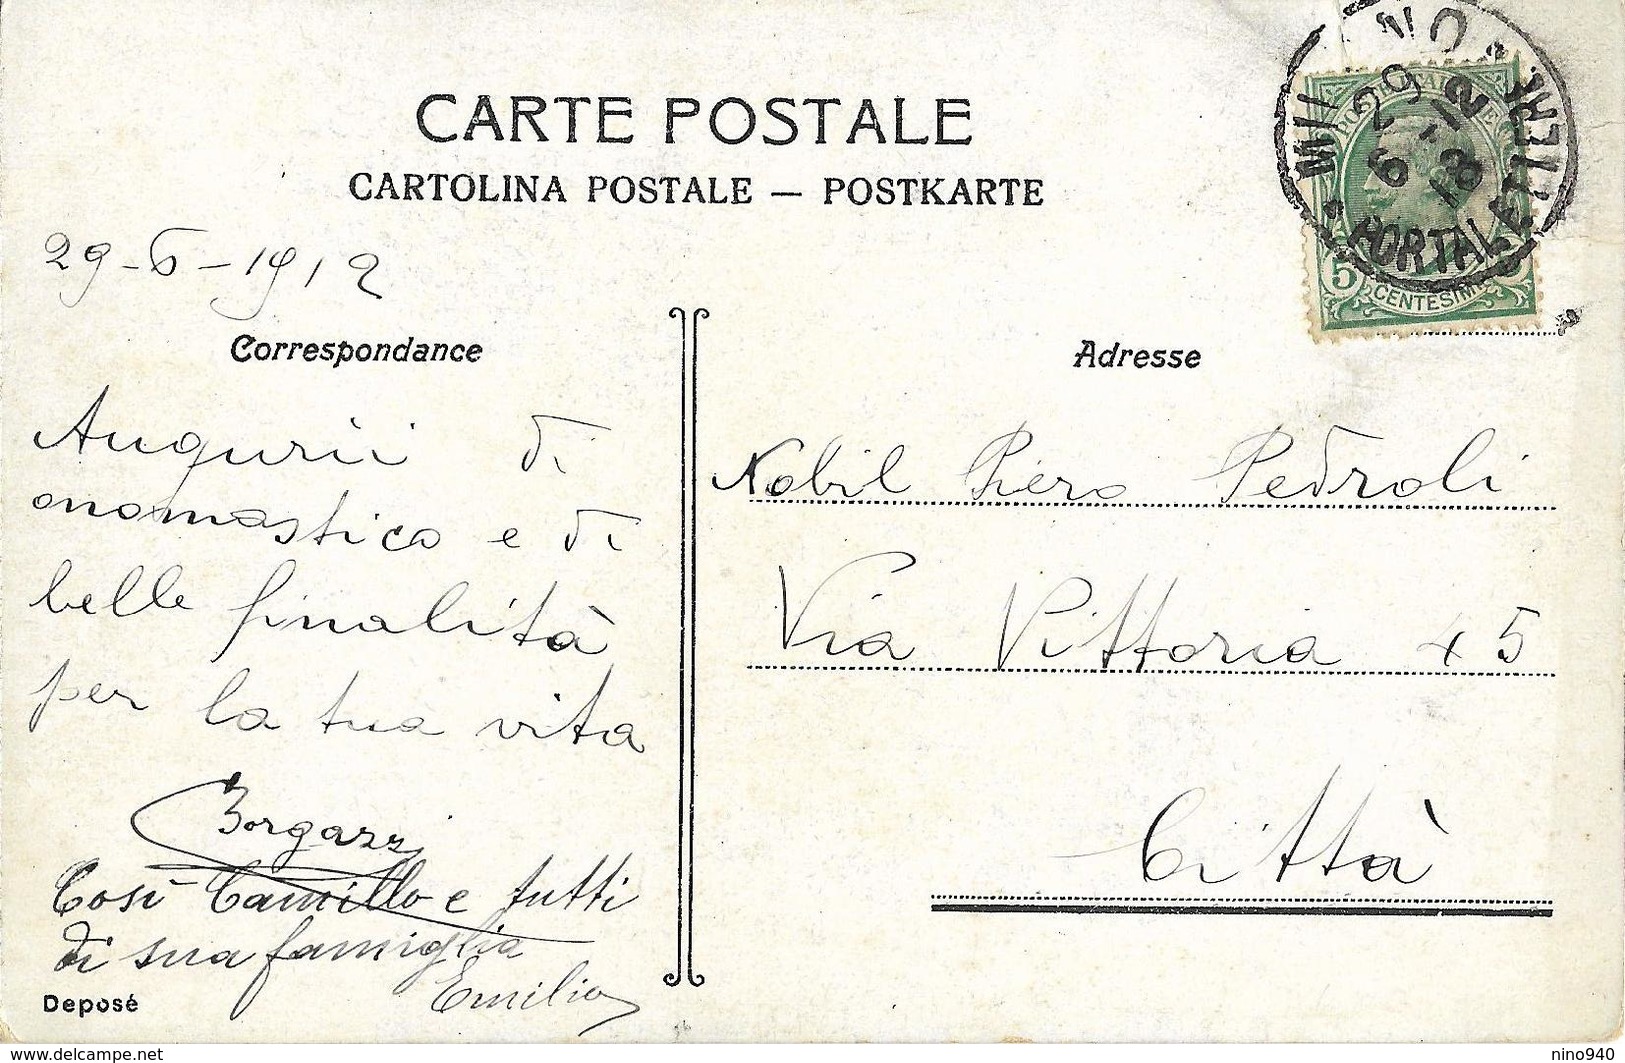 CARTE POSTALE
CARTOLINA POSTALE — POSTKARTE
29-6-1912
Correspondance
Augurii di
onomastico e di
belle finalità
per la tua vita
Borgazzi
Così Camillo e tutti
di sua famiglia
Emilia
Deposé
MILANO
29
6-12
18
PORTA LETTERE
POSTE ITALIANE
5
CENTESIMI
Adresse
Nobil Piero Pedroli
Via Vittoria 45
Città
www.delcampe.net
nino940